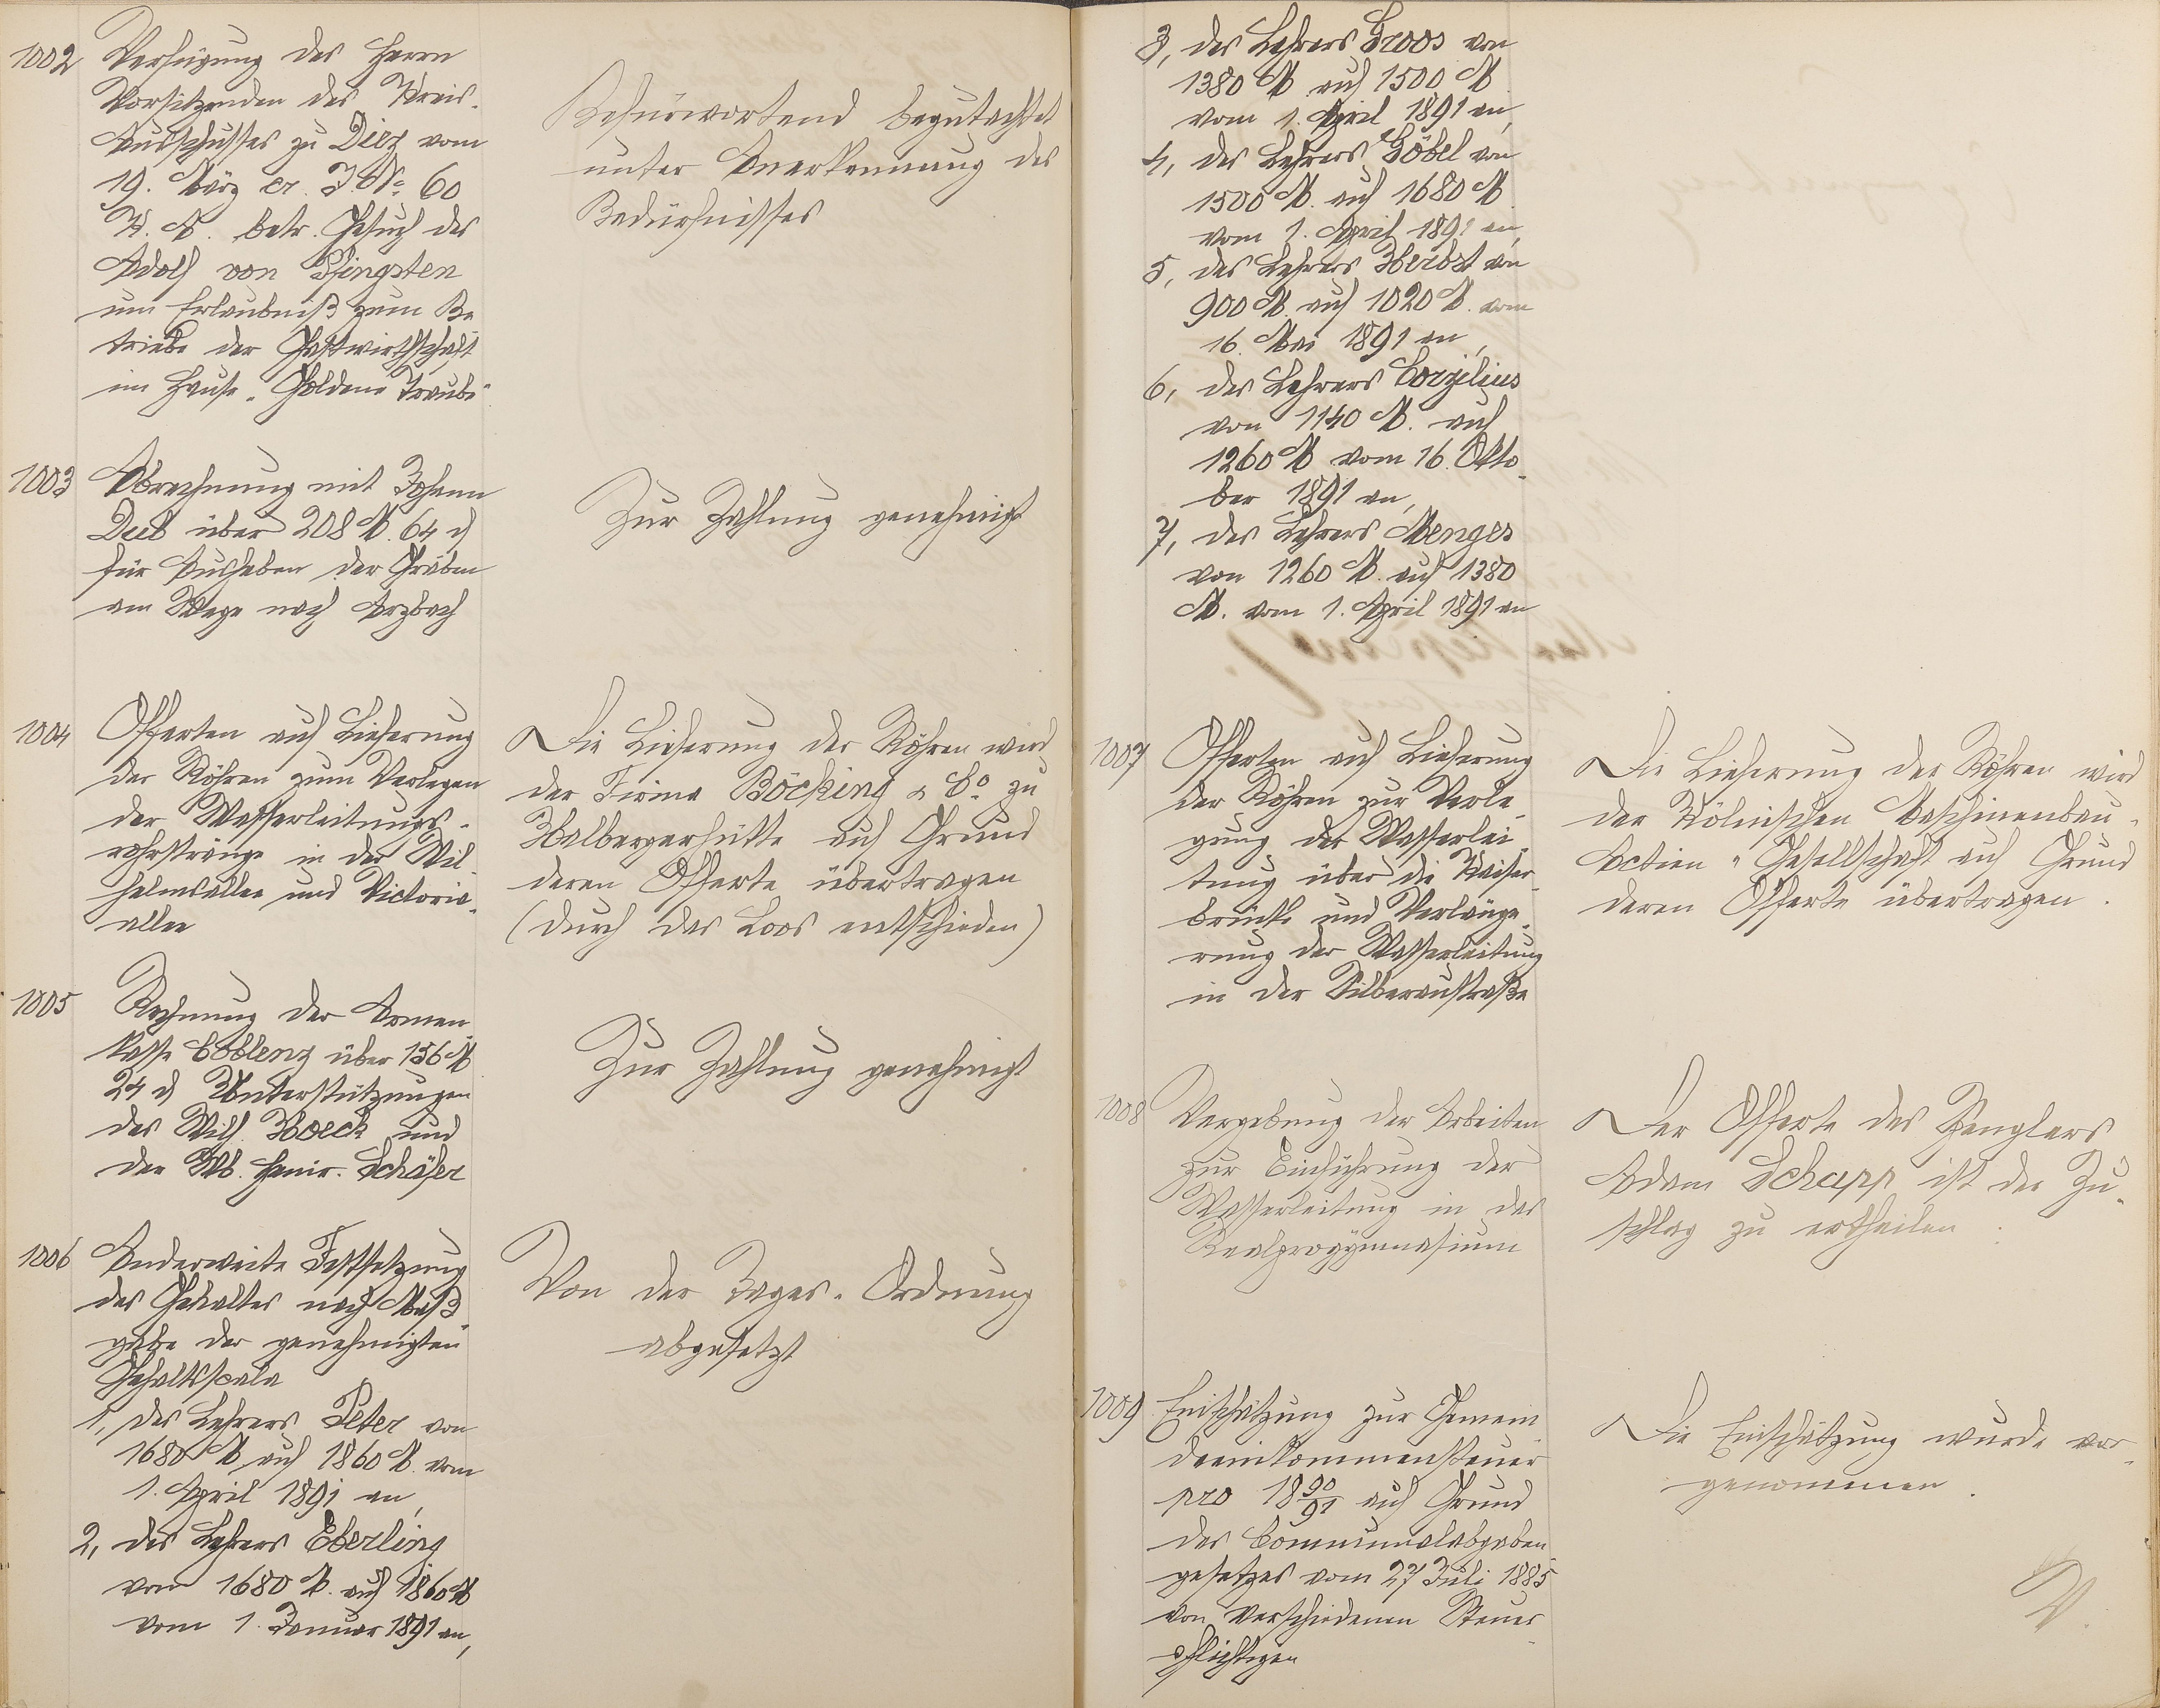 1002 Verfügung des Herrn
Vorsitzenden des Kreis-
Ausschusses zu Diez vom
19. März cr. J. No. 60
K. A. betr. Gesuch des
Adolf von Pfingsten
um Erlaubniß zum Be
triebe der Gastwirthschaft
im Hause "Goldene Traube"
Befürwortend begutachtet
unter Anerkennung des
Bedürfnisses
1003 Abrechnung mit Johann
Deeb über 208 M. 64 d
für Ausheben der Gräben
am Wege nach Arzbach
Zur Zahlung genehmigt
1004 Offerten auf Lieferung
der Röhren zum Verlegen
der Wasserleitungs-
rohrstränge in der Wil-
helmsallee und Victoria-
allee
Die Lieferung der Röhren wird
der Firma Böcking & Co. zu
Halbergerhütte auf Grund
deren Offerte übertragen
(durch das Loos entschieden)
1005 Rechnung der Armen-
kasse Coblenz über 156 M
24 d Unterstützungen
des Wilh. Hoeck und
der Wb. Heinr. Schäfer
Zur Zahlung genehmigt
1006 Anderweite Festsetzung
des Gehaltes nach Maß-
gabe der genehmigten
Gehaltsscala
1, des Lehrers Peter von
1680 M auf 1860 M. vom
1. April 1891 an,
2, des Lehrers Eberling
vom 1680 M. auf 1860 M
vom 1. Januar 1891 an,
Von der Tages-Ordnung
abgesetzt
3, des Lehrers Groos von
1380 M auf 1500 M
vom 1. April 1891 an,
4, des Lehrers Göbel von
1500 M. auf 1680 M
vom 1. April 1891 an,
5, des Lehrers Herbst von
900 M. auf 1020 M. vom
16. Mai 1891 an,
6, des Lehrers Corzilius
von 1140 M. auf
1260 M vom 16. Okto-
ber 1891 an,
7, des Lehrers Menges
von 1260 M. auf 1380
M. vom 1. April 1891 an
1007 Offerten auf Lieferung
der Röhren zur Verle-
gung der Wasserlei-
tung über die Kaiser-
brücke und Verlänge-
rung der Wasserleitung
in der Silberaustraße
Die Lieferung der Röhren wird
der Kölnischen Maschinenbau-
Actien-Gesellschaft auf Grund
deren Offerte übertragen.
1008 Vergebung der Arbeiten
zur Einführung der
Wasserleitung in das
Realprogymnasium
Der Offerte des Spenglers
Adam Schupp ist der Zu-
schlag zu ertheilen.
1009 Einschätzung zur Gemein
deeinkommensteuer
pro 1890/91 auf Grund
des Communalabgaben
gesetzes vom 27 Juli 1885
von verschiedenen Steuer
pflichtigen
Die Einschätzung wurde vor-
genommen.